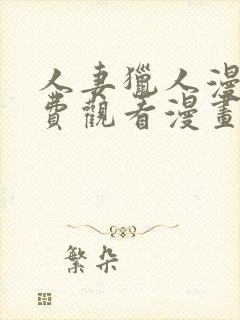 人妻獵人漫
費觀看漫畫
繁朵